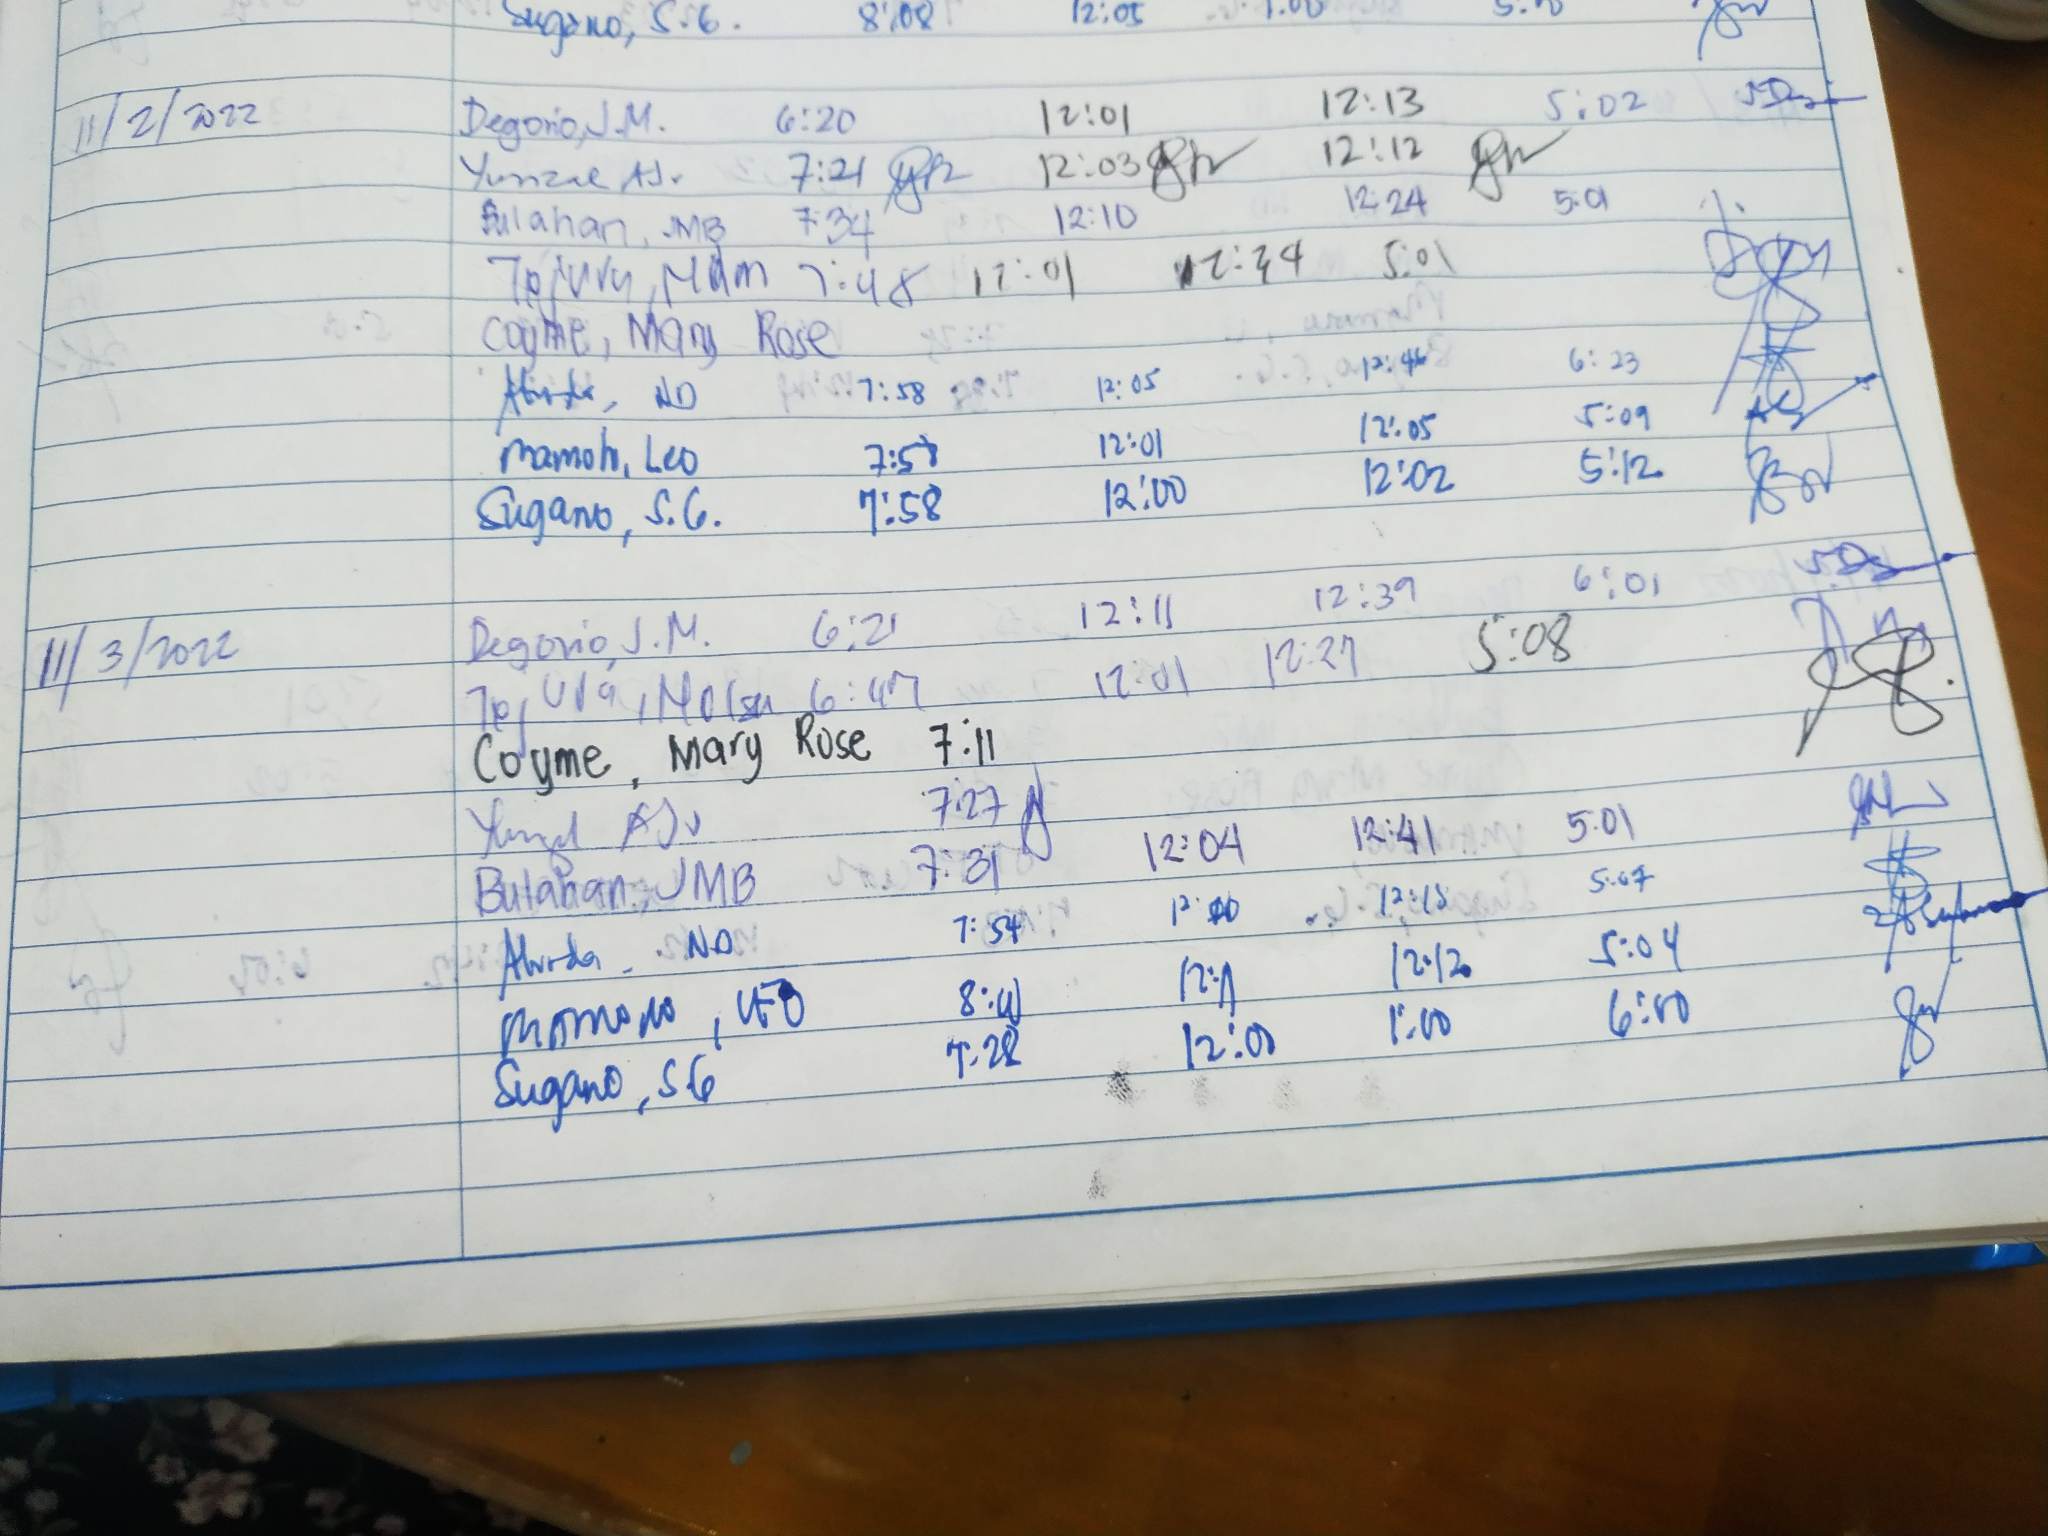 Sugano, S.G. 8:08 12:05 1:00
11/2/2022 Degorio, J.M. 6:20 12:01 12:13 5:02
Yunzal AJ. 7:21 12:03 12:12
Bulahan, JMB 7:34 12:10 12:24 5:01
7:48 12:01 12:34 5:01
Coyme, Mary Rose
ND 7:58 12:05 12:46 6:23
Mamolo, Leo 12:01 12:05 5:09
Sugano, S.G. 7:58 12:00 12:02 5:12
11/3/2022 Degorio, J.M. 6:21 12:11 12:39 6:01
6:47 12:01 12:27 5:08
Coyme, Mary Rose 7:11
Yunzal AJ. 7:27
Bulahan, JMB 7:31 12:04 12:41 5:01
ND 7:54 5:07
8:00 12:12 5:04
Sugano, S.G 7:28 12:00 1:00 6:00